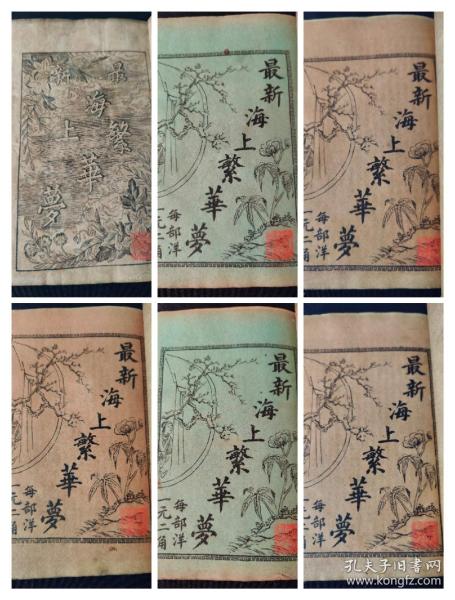 最新
海上繁華夢
最新
海上繁華夢
每部洋
一元二角
最新
海上繁華夢
每部洋
一元二角
最新
海上繁華夢
每部洋
一元二角
最新
海上繁華夢
每部洋
一元二角
最新
海上繁華夢
每部洋
一元二角
孔夫子旧书网
www.kongfz.com